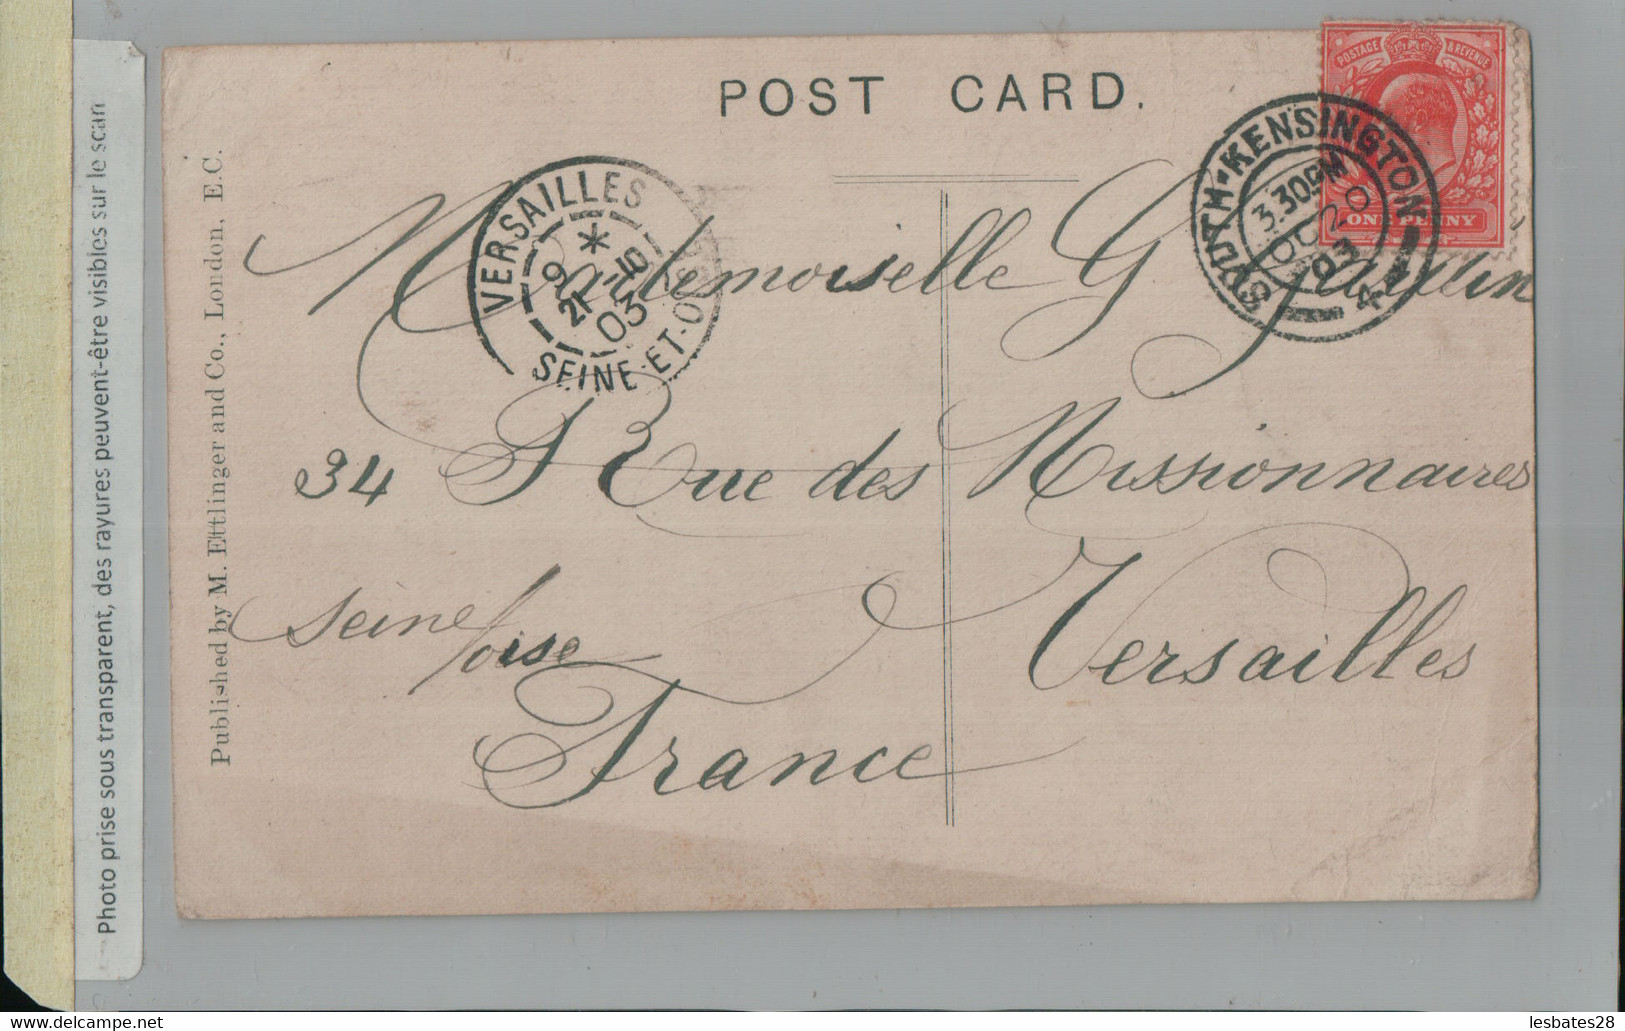 POST CARD.
POSTAGE & REVENUE
ONE PENNY
SOUTH·KENSINGTON
3.30PM
OC 20
03
VERSAILLES
*
9
21 -10
03
SEINE-ET-OISE
Mademoiselle G
34 Rue des Missionnaires
Versailles
Seine / oise
France
Published by M. Ettlinger and Co., London, E.C.
Photo prise sous transparent, des rayures peuvent-être visibles sur le scan
www.delcampe.net
lesbates28